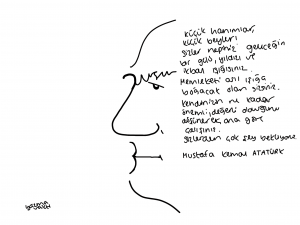 küçük hanımlar,
küçük beyler!
sizler hepiniz geleceğin
bir gülü, yıldızı ve
ikbal ışığısınız.
Memleketi asıl ışığa
boğacak olan sizsiniz.
kendinizin ne kadar
önemli, değerli olduğunu
düşünerek, ona göre
çalışınız.
sizlerden çok şey bekliyoruz.
Mustafa Kemal ATATÜRK